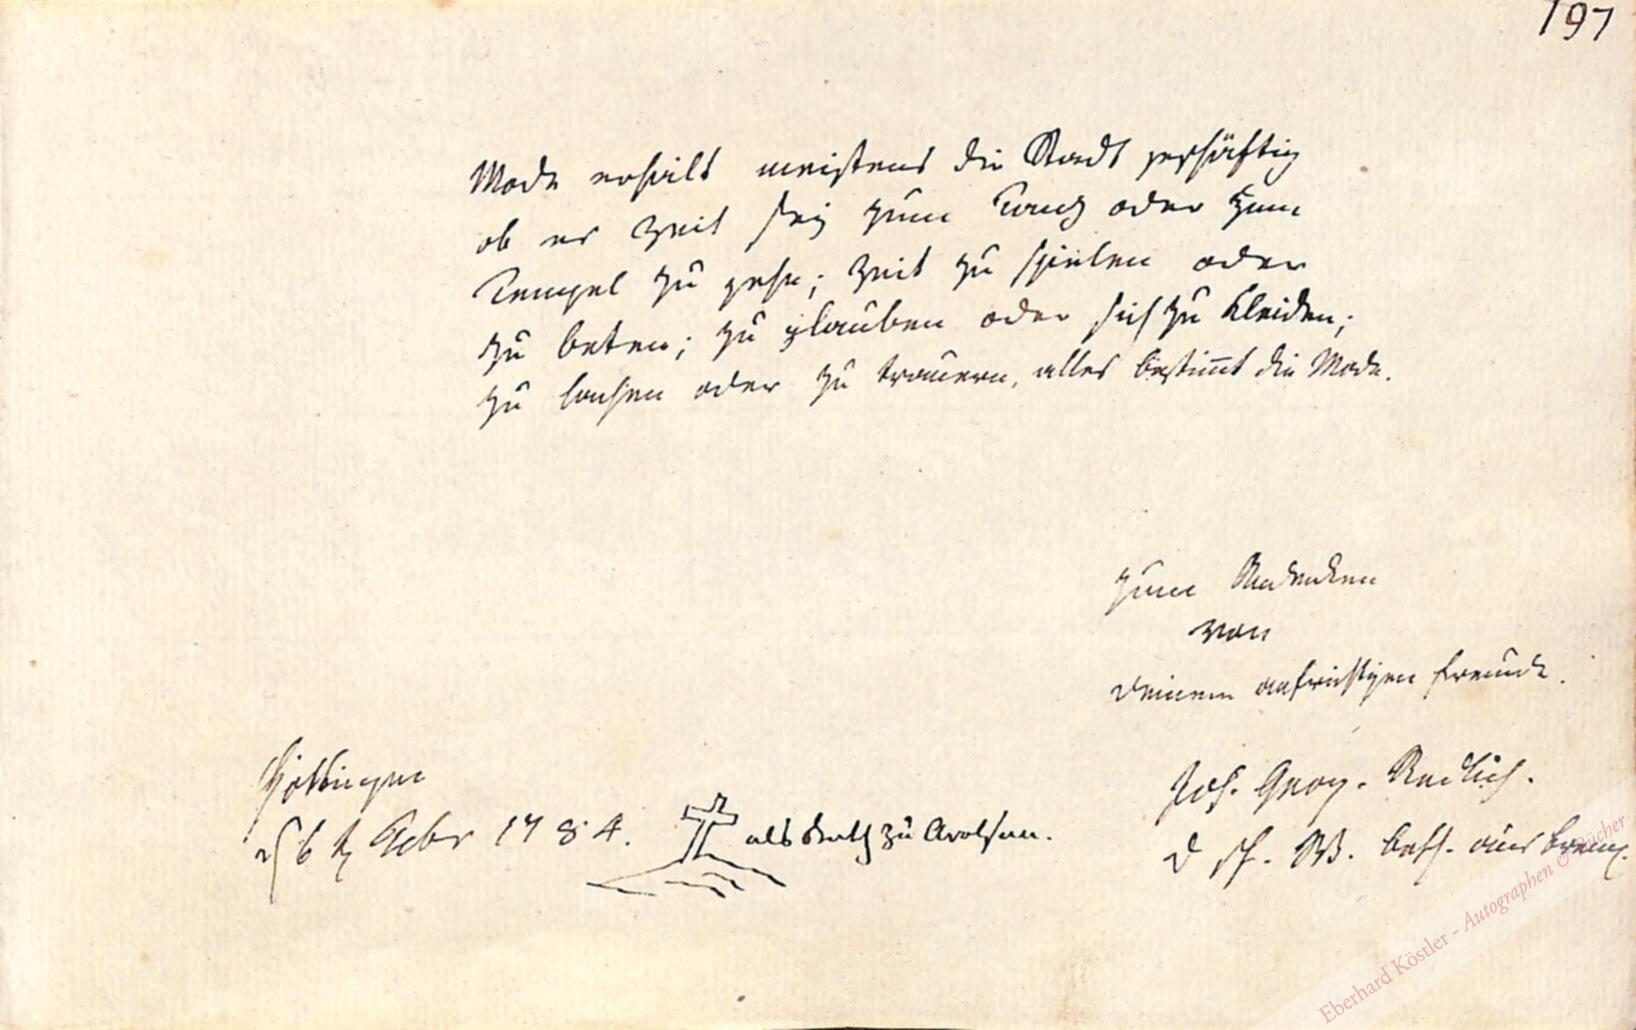 197
Mode erhält meistens die Stadt geschäftig
ob es Zeit sey zum Tanz oder zum
Tempel zu gehn; Zeit zu spielen oder
zu beten; zu glauben oder sich zu kleiden;
zu lachen oder zu trauern, alles bestim̅t die Mode.
Zum Andenken
von
deinem aufrichtigen Freunde.
Göttingen
1784.
als Rath zu Arolsen.
Joh. Georg. Redlich.
d. W. aus
Eberhard Köstler - Autographen & Bücher